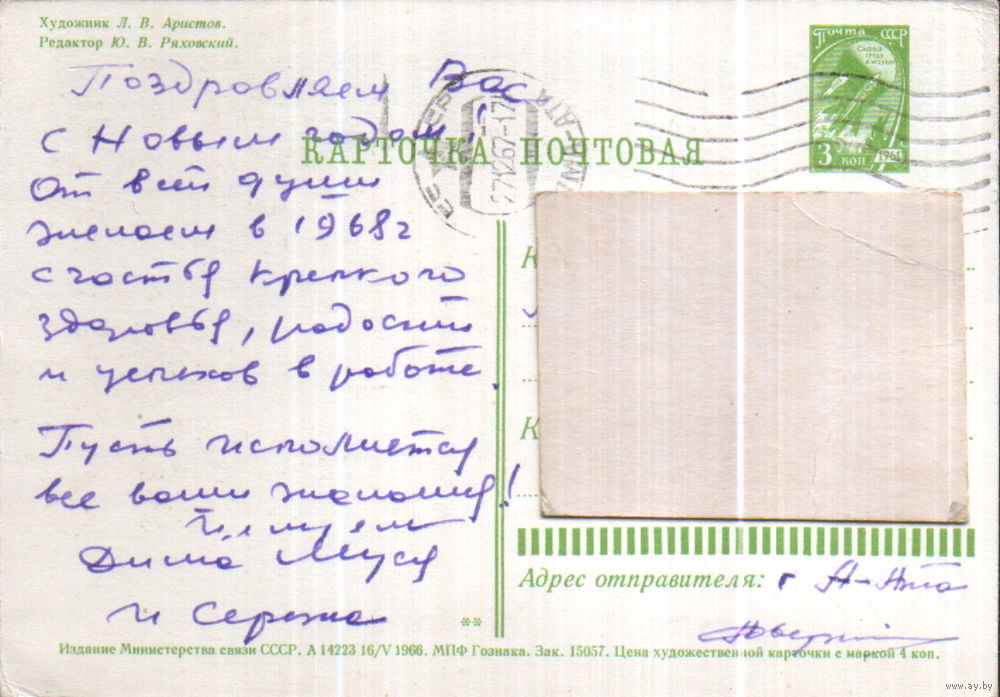 Художник Л. В. Аристов.
Редактор Ю. В. Ряховский.
Почта СССР
3 коп
1961
КАРТОЧКА ПОЧТОВАЯ
27.12.67-17
Поздравляем Вас
с Новым годом!
От всей души
желаем в 1968 г
счастья крепкого
здоровья, радости
и успехов в работе.
Пусть исполнется
все ваши желания!
Целуем
Дима Муся
и Сережа
К
К
Адрес отправителя: г А-Ата
Издание Министерства связи СССР. А 14223 16/V 1966. МПФ Гознака. Зак. 15057. Цена художественной карточки с маркой 4 коп.
www.ay.by